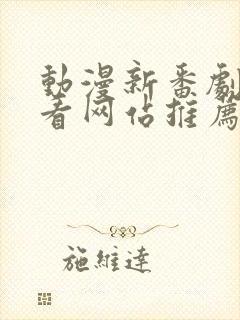 動漫新番劇
看网佔推薦
施維達